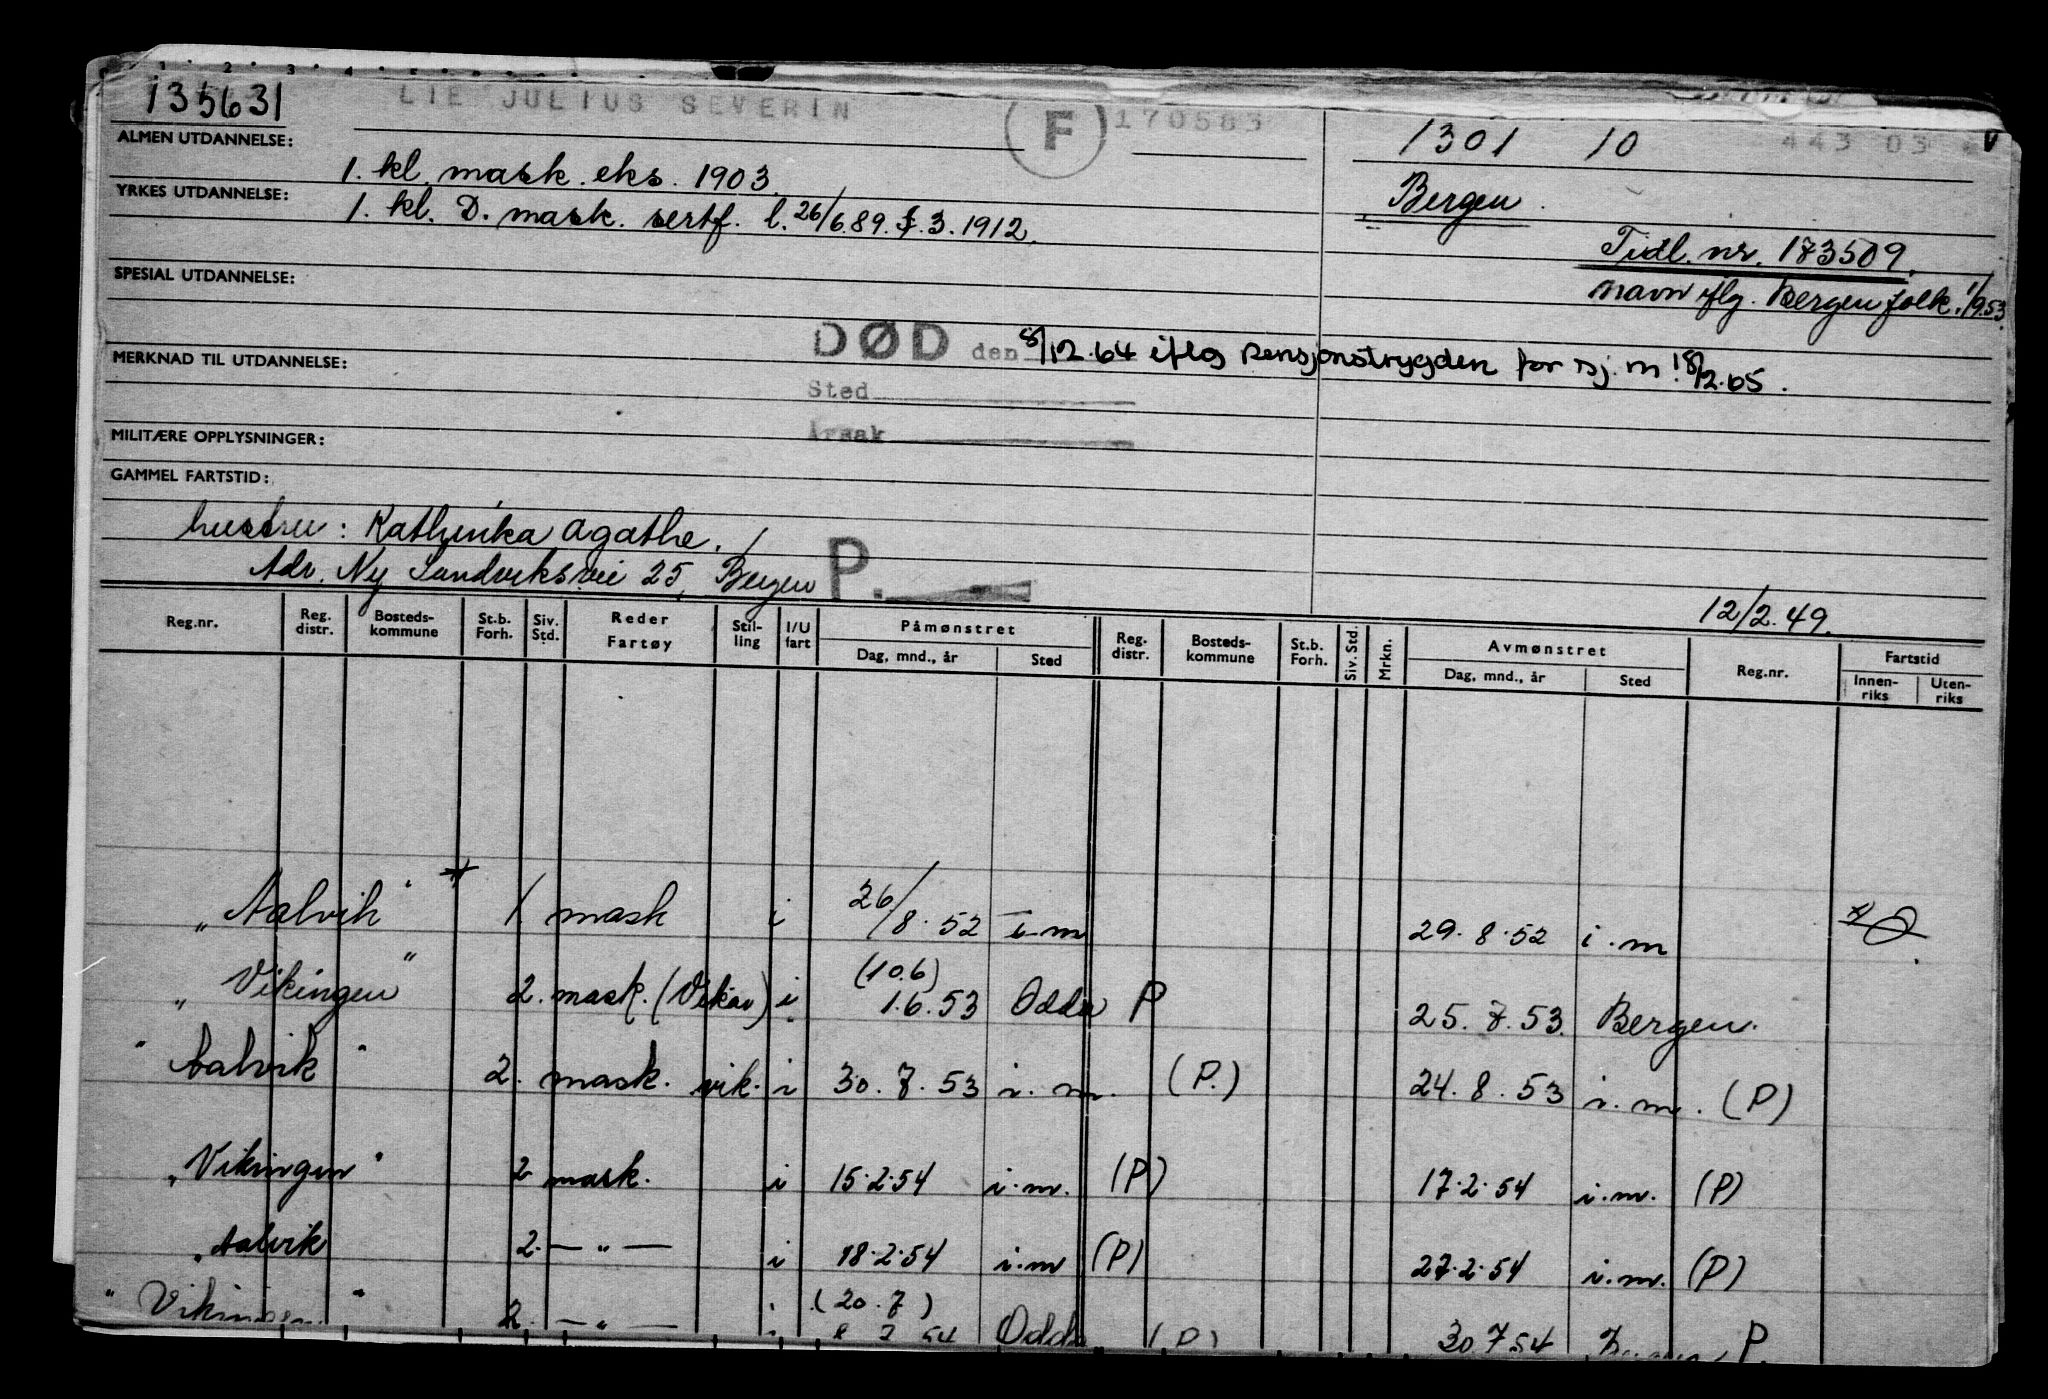 135631 LIE JULIUS SEVERIN F 170583 1301 10 443 03 V
ALMEN UTDANNELSE:
1. kl. mask. eks. 1903. Bergen.
YRKES UTDANNELSE: 1. kl. D. mask. sertf. l. 26/6.89. 7.3.1912.
Tidl. nr. 173509.
SPESIAL UTDANNELSE: navn iflg. Bergen folk. 1/9.53.
DØD den 8/12.64 iflg Pensjonstrygden for sj.m. 18/2.65.
MERKNAD TIL UTDANNELSE:
Sted
MILITÆRE OPPLYSNINGER: Årsak
GAMMEL FARTSTID:
hustru: Kathinka Agathe.
Adr. Ny Sandviksvei 25, Bergen P.
12/2.49.
Reg.nr. Reg. distr. Bosteds-kommune St.b. Forh. Siv. Std. Reder Fartøy Stil-ling I/U fart Påmønstret Reg. distr. Bosteds-kommune St.b. Forh. Siv. Std. Mrkn. Avmønstret Reg.nr. Fartstid
Dag, mnd., år Sted Dag, mnd., år Sted Innen-riks Uten-riks
"Aalvik" 1 mask i 26/8.52 i.m 29.8.52 i.m
(10.6)
"Vikingen" 2. mask. i 1.6.53 Odda P 25.7.53. Bergen.
"Aalvik" 2. mask. vik. i 30.7.53 i.m. (P.) 24.8.53 i.m. (P)
"Vikingen" 2 mask. i 15.2.54 i.m. (P) 17.2.54 i.m. (P)
"Aalvik 2. — " — i 18.2.54 i.m (P) 27.2.54 i.m. (P)
(20.7)
"Vikingen" 2. — " — i 54 Odda (P) 30 7 54 P.